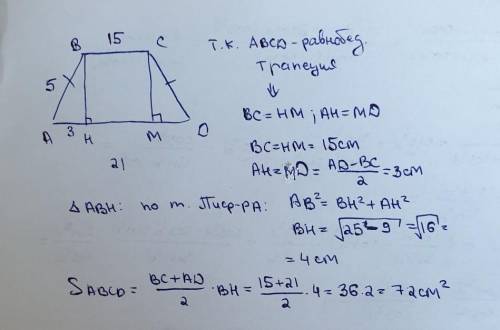 15
B
C
5
A
3
H
M
D
21
т.к. ABCD - равнобед.
трапеция
⇓
BC = HM ; AH = MD
BC = HM = 15 см
AH = MD = \frac{AD - BC}{2} = 3 см
Δ ABH: по т. Пиф-ра: AB² = BH² + AH²
BH = √(25 - 9) = √16 =
= 4 см
S_{ABCD} = \frac{BC + AD}{2} · BH = \frac{15 + 21}{2} · 4 = 36 · 2 = 72 см²